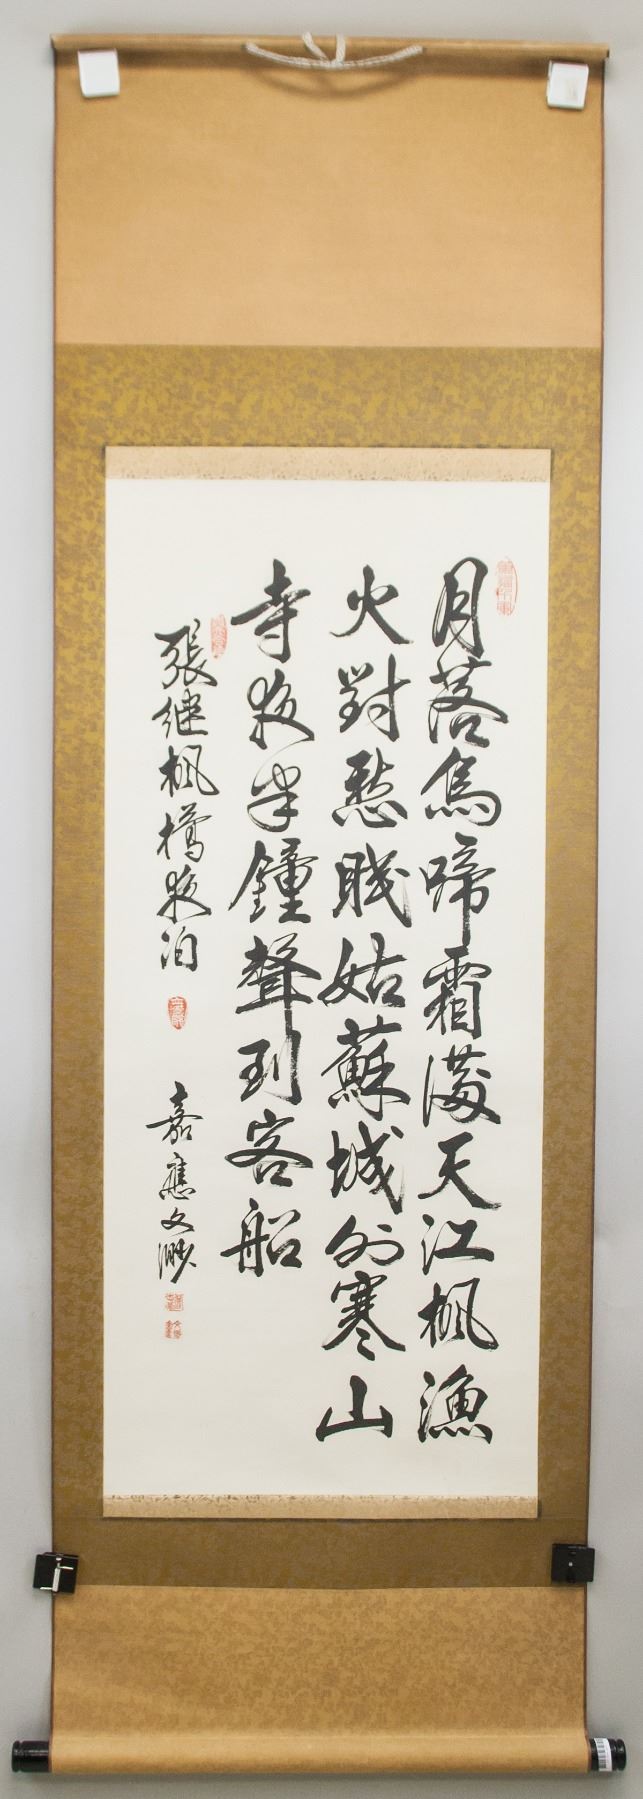 月落烏啼霜滿天江楓漁
火對愁眠姑蘇城外寒山
寺夜半鐘聲到客船
張继楓橋夜泊
嘉應文渺